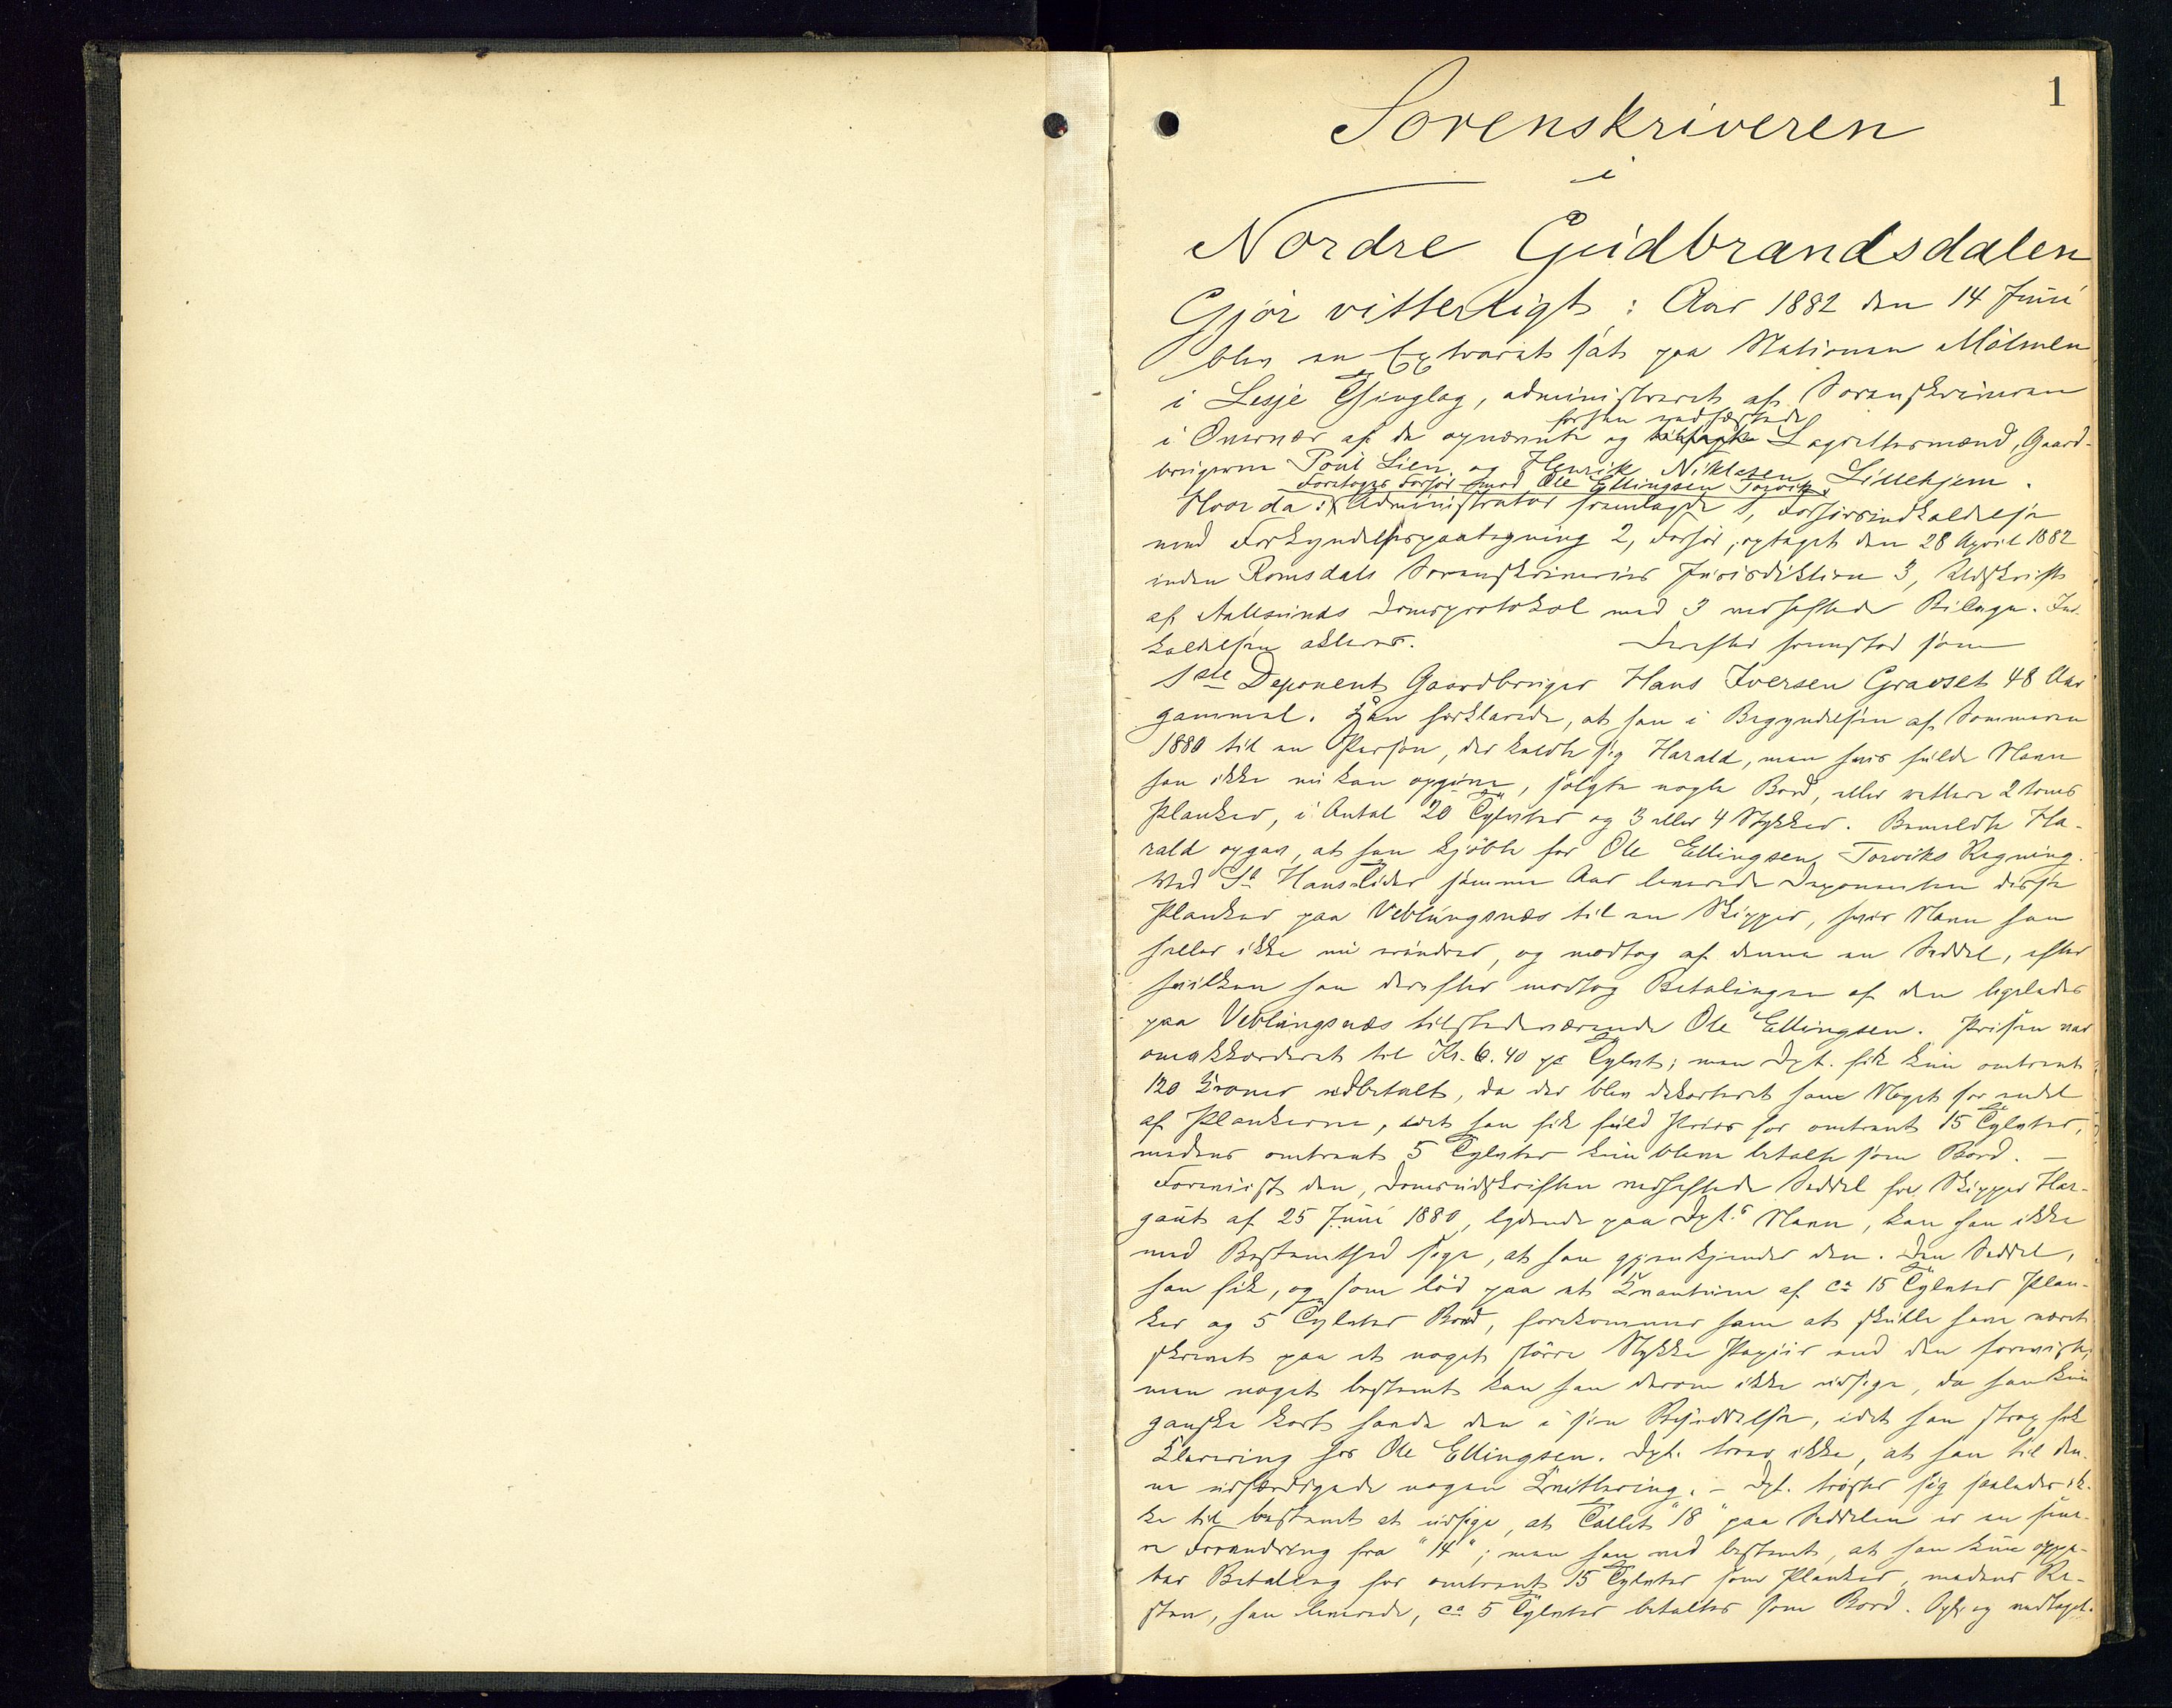 1
Sorenskriveren
i
Nordre Gudbrandsdalen
Gjør vitterligt: Aar 1882 den 14 Juni
blev en Extraret sat paa Stationen Mølmen
i Lesje Thinglag, administreret af Sorenskriveren
i Overvær af de opnævnte og forhen edfæstede Lagrettesmænd, Gaard-
brugerne Poul Lien og Henrik Niklasen Lillehjem.
Foretoges Forhør mod Ole Ellingsen Torvik.
Hvor da: Administrator fremlagde 1, Forhørsindkaldelse
med Forkyndelsespaategning 2, Forhør, optaget den 28 April 1882
inden Romsdals Sorenskriveries Jurisdiktion 3, Udskrift
af Aalesunds Domsprotokol med 3 vedheftede Bilage. Ind-
kaldelsen akteres. Derefter fremstod som
1ste Deponent Gaardbruger Hans Iversen Gravset 48 Aar
gammel. Han forklarede, at han i Begyndelsen af Sommeren
1880 til en Person, der kaldte sig Harald, men hvis fulde Navn
han ikke nu kan opgive, solgte nogle Bord, eller rettere 2 toms
Planker, i Antal 20 Tylvter og 3 eller 4 Stykker. Bemeldte Ha-
rald opgav, at han kjøbte for Ole Ellingsen Torviks Regning.
Ved St Hanstider samme Aar leverede Deponenten disse
Planker paa Veblungsnæs til en Skipper, hvis Navn han
heller ikke nu erindrer, og modtog af denne en Seddel, efter
hvilken han derefter modtog Betalingen af den ligeledes
paa Veblungsnæs tilstedeværende Ole Ellingsen. Prisen var
omakkorderet til Kr. 6.40 pr Tylvt; men Dpt. fik kun omtrent
120 Kroner udbetalt, da der blev dekorteret ham Noget for endel
af Plankerne, idet han fik fuld Priis for omtrent 15 Tylvter,
medens omtrent 5 Tylvter kun bleve betalte som Bord. —
Foreviist den, Domsudskriften vedheftede Seddel fra Skipper Har-
gaut af 25 Juni 1880, lydende paa Dpt.s Navn, kan han ikke
med Bestemthed sige, at han gjenkjender den. Den Seddel,
han fik, og som lød paa et Kvantum af ca 15 Tylvter Plan-
ker og 5 Tylvter Bord, forekommer ham at skulle have været
skrevet paa et noget større Stykke Papiir end den foreviste,
men noget bestemt kan han derom ikke udsige, da han kun
ganske kort havde den i sin Besiddelse, idet han strax fik
Klarering hos Ole Ellingsen. Dpt. troer ikke, at han til den-
ne udfærdigede nogen Kvittering. — Dpt. trøster sig saaledes ik-
ke til bestemt at udsige, at Tallet "18" paa Seddelen er en sene-
re Forandring fra "14"; men han ved bestemt, at han kun oppe-
bar Betaling for omtrent 15 Tylvter som Planker, medens Re-
sten, han leverede, ca 5 Tylvter betaltes som Bord. Opl. og vedtaget.